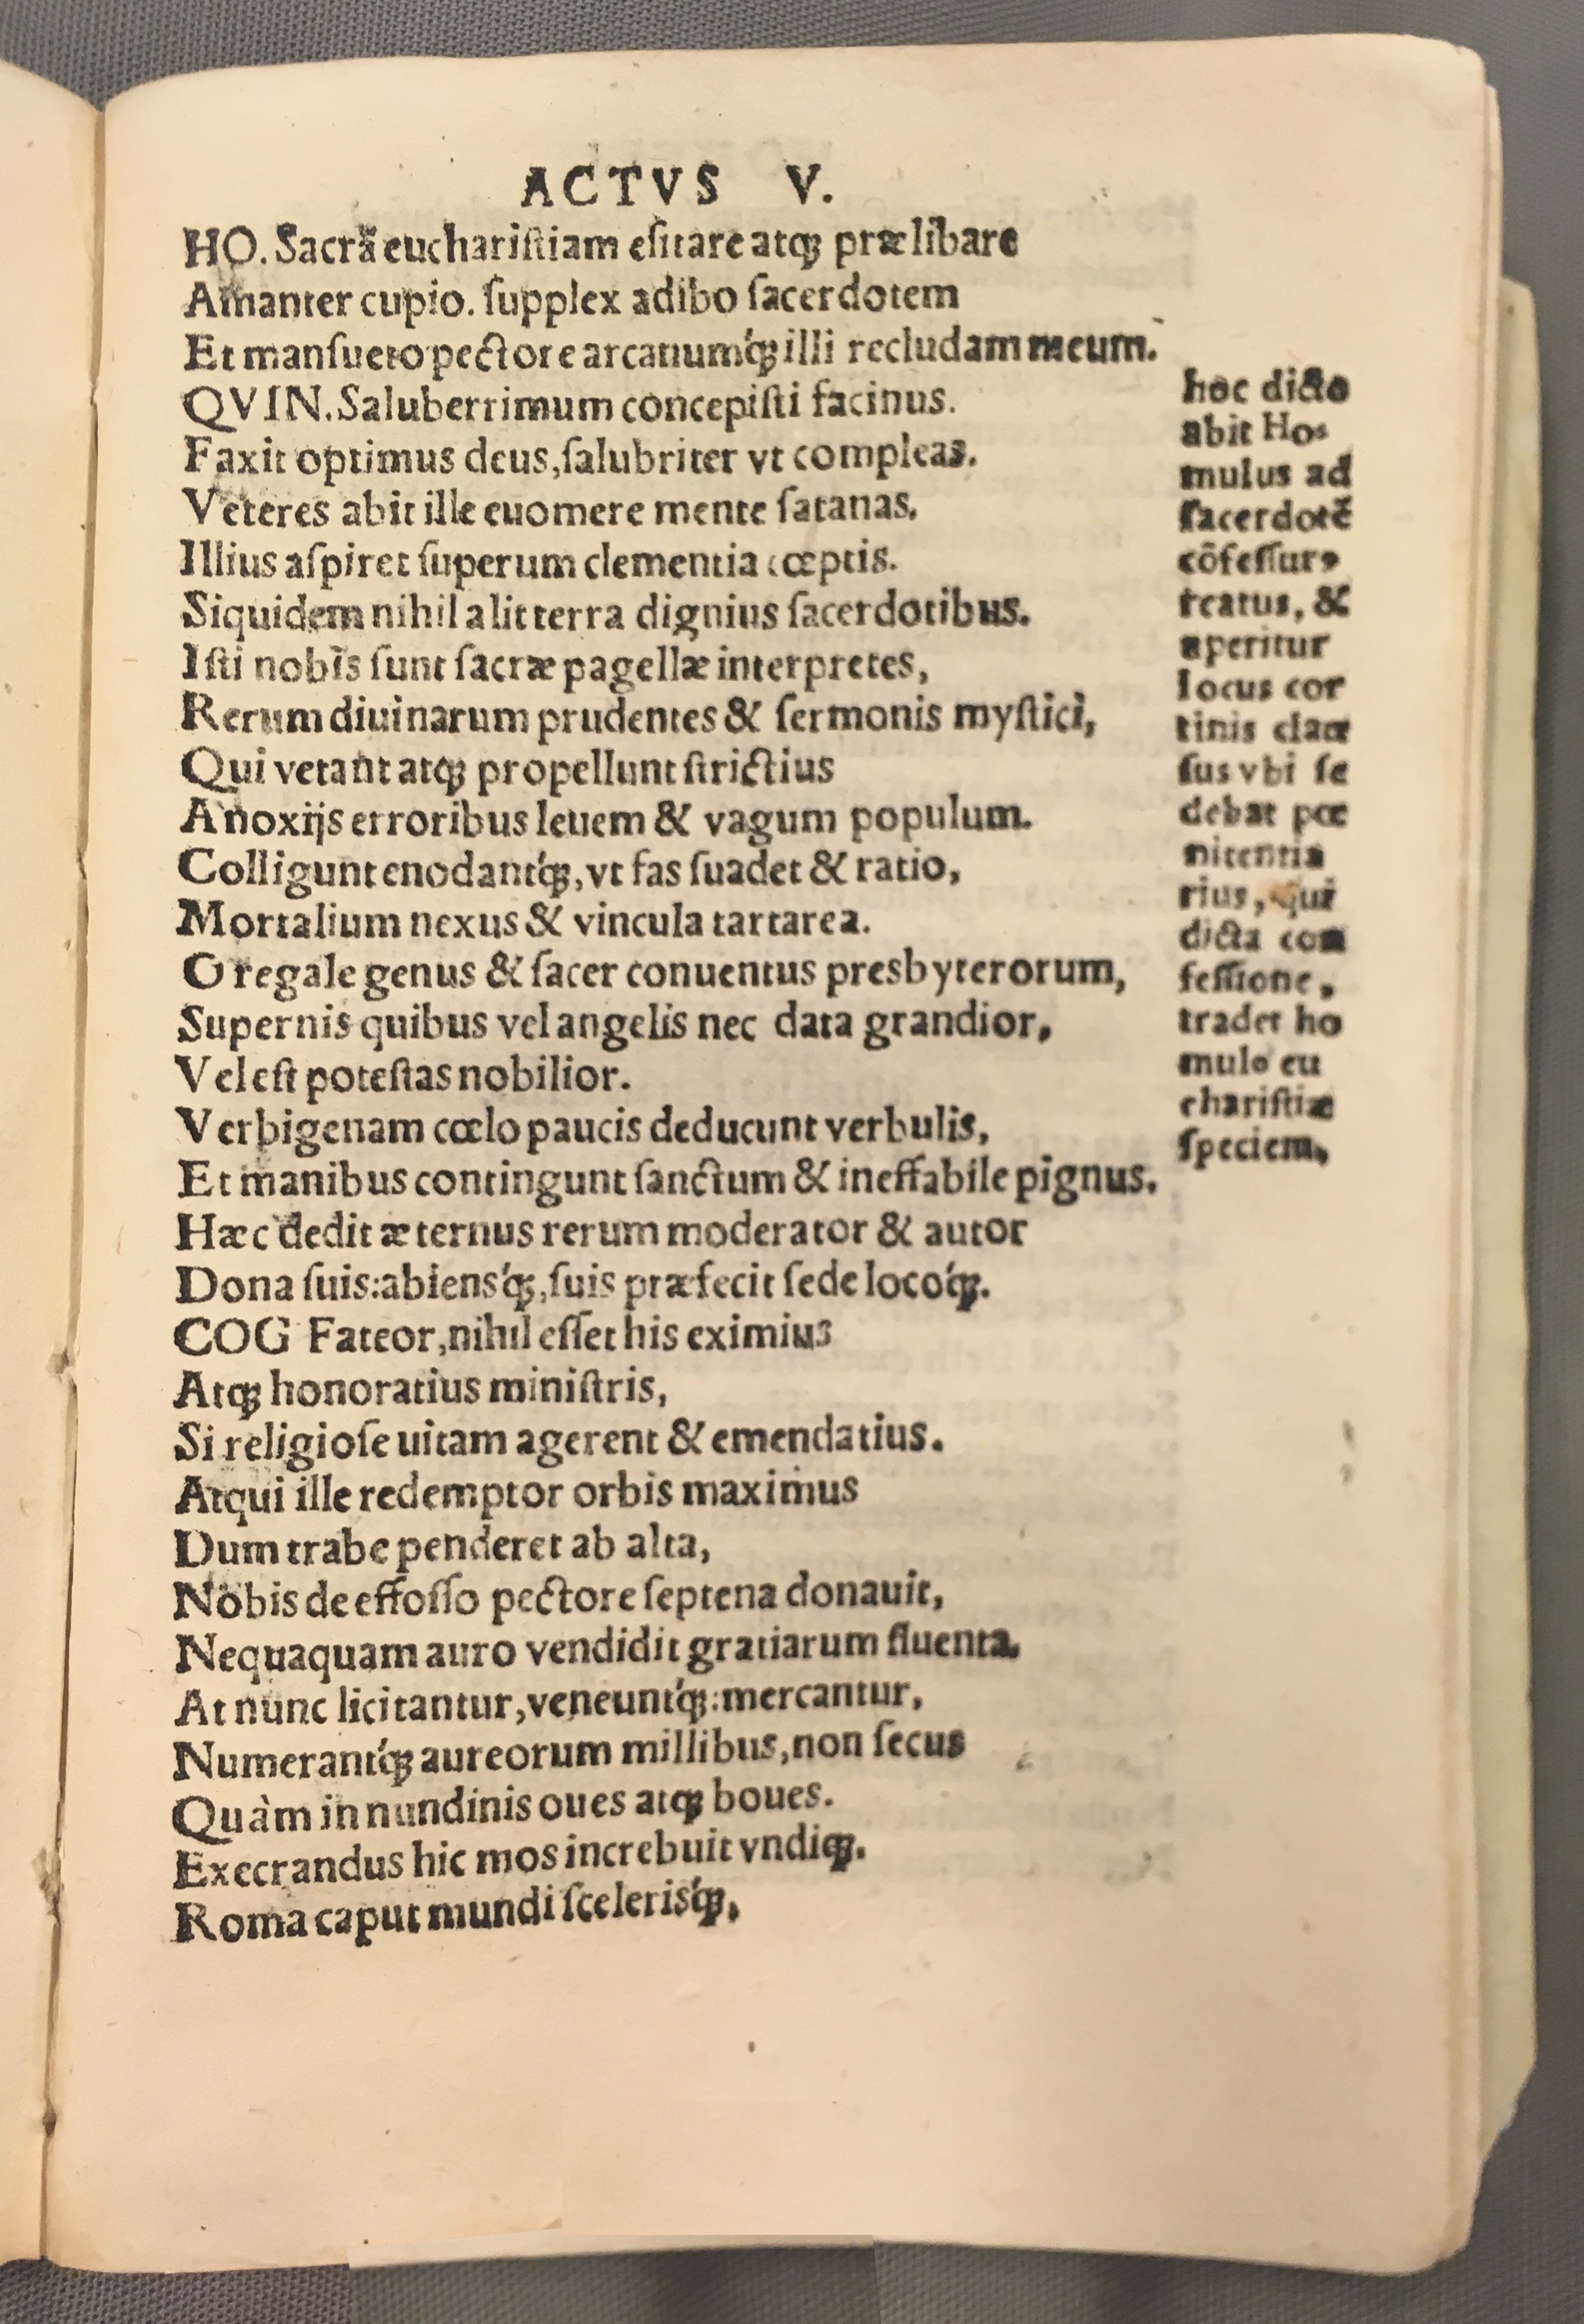 ACTVS V.
HO. Sacrā euchariſtiam eſitare atqꝫ prælibare
Amanter cupio. ſupplex adibo ſacerdotem
Et manſueto pectore arcanumq́ꝫ illi recludam meum.
QVIN. Saluberrimum concepiſti facinus.
Faxit optimus deus, ſalubriter vt compleas.
Veteres abit ille euomere mente ſatanas.
Illius aſpiret ſuperum clementia cœptis.
Siquidem nihil alit terra dignius ſacerdotibus.
Iſti nobis ſunt ſacræ pagellæ interpretes,
Rerum diuinarum prudentes & ſermonis myſtici,
Qui vetant atqꝫ propellunt ſtrictius
A noxijs erroribus leuem & vagum populum.
Colligunt enodantq́ꝫ, vt fas ſuadet & ratio,
Mortalium nexus & vincula tartarea.
O regale genus & ſacer conuentus presbyterorum,
Supernis quibus vel angelis nec data grandior,
Vel eſt poteſtas nobilior.
Verbigenam cœlo paucis deducunt verbulis,
Et manibus contingunt ſanctum & ineffabile pignus.
Hæc dedit æternus rerum moderator & autor
Dona ſuis: abiensq́ꝫ, ſuis præfecit ſede locoq́ꝫ.
COG Fateor, nihil eſſet his eximius
Atqꝫ honoratius miniſtris,
Si religioſe uitam agerent & emendatius.
Atqui ille redemptor orbis maximus
Dum trabe penderet ab alta,
Nobis de effoſſo pectore ſeptena donauit,
Nequaquam auro vendidit gratiarum fluenta.
At nunc licitantur, veneuntq́ꝫ: mercantur,
Numerantq́ꝫ aureorum millibus, non ſecus
Quàm in nundinis oues atqꝫ boues.
Execrandus hic mos increbuit vndiqꝫ.
Roma caput mundi ſcelerisq́ꝫ,
hoc dicto
abit Ho-
mulus ad
ſacerdotē
cōfeſſurꝰ
reatus, &
aperitur
locus cor
tinis clau
ſus vbi ſe
debat pœ
nitentia
rius, qui
dicta con
feſſione,
tradet ho
mulo eu
chariſtiæ
ſpeciem,